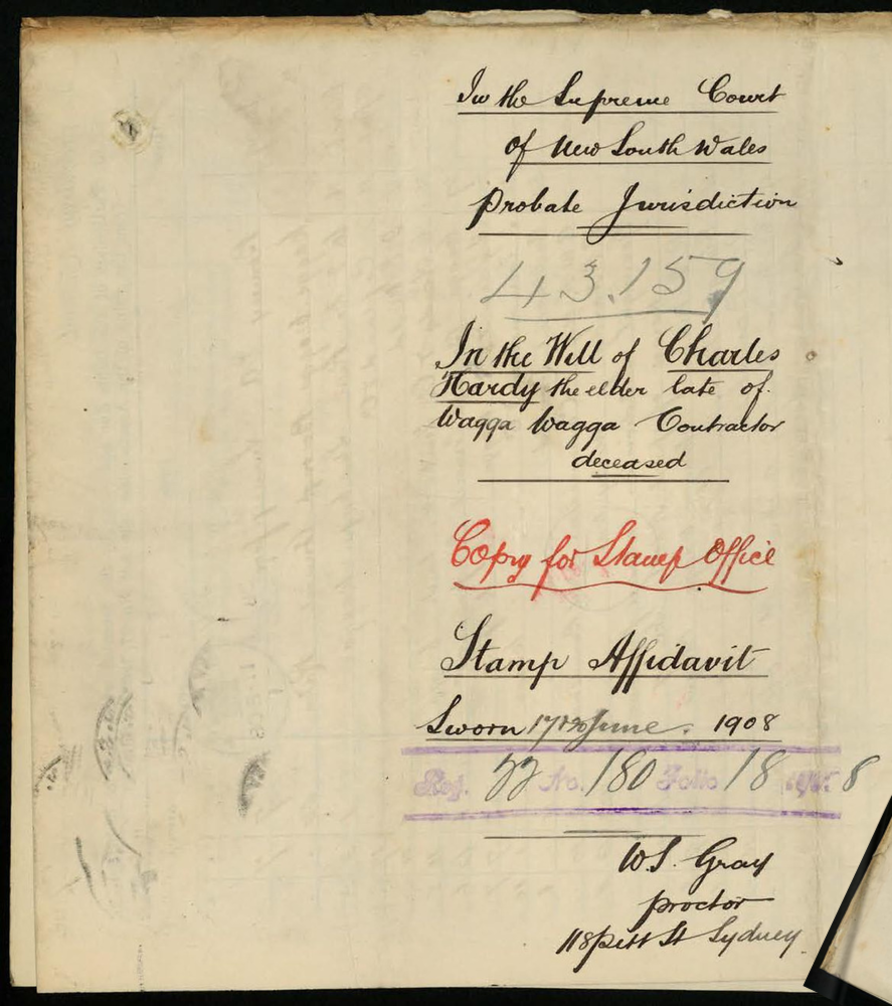 In the Supreme Court
of New South Wales
Probate Jurisdiction
43.159
In the Will of Charles
Hardy the elder late of
Wagga Wagga Contractor
deceased
Copy for Stamp Office
Stamp Affidavit
Sworn 17th June. 1908
Reg. No. 180 Folio 18 8
W.S. Gray
proctor
118 Pitt St Sydney.